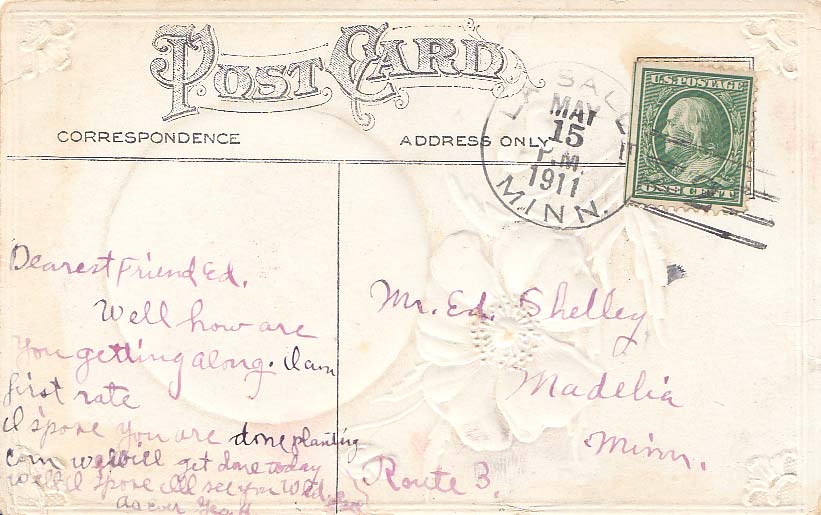 POST CARD
CORRESPONDENCE
ADDRESS ONLY
LA SALLE
MAY
15
P.M.
1911
MINN.
U.S. POSTAGE
ONE CENT
Dearest Friend Ed.
Well how are
you getting along. I am
first rate
I spose you are done planting
corn we will get done today
well I spose Ill see you Wed.
as ever
Mr. Ed. Shelley
Madelia
Minn.
Route 3.